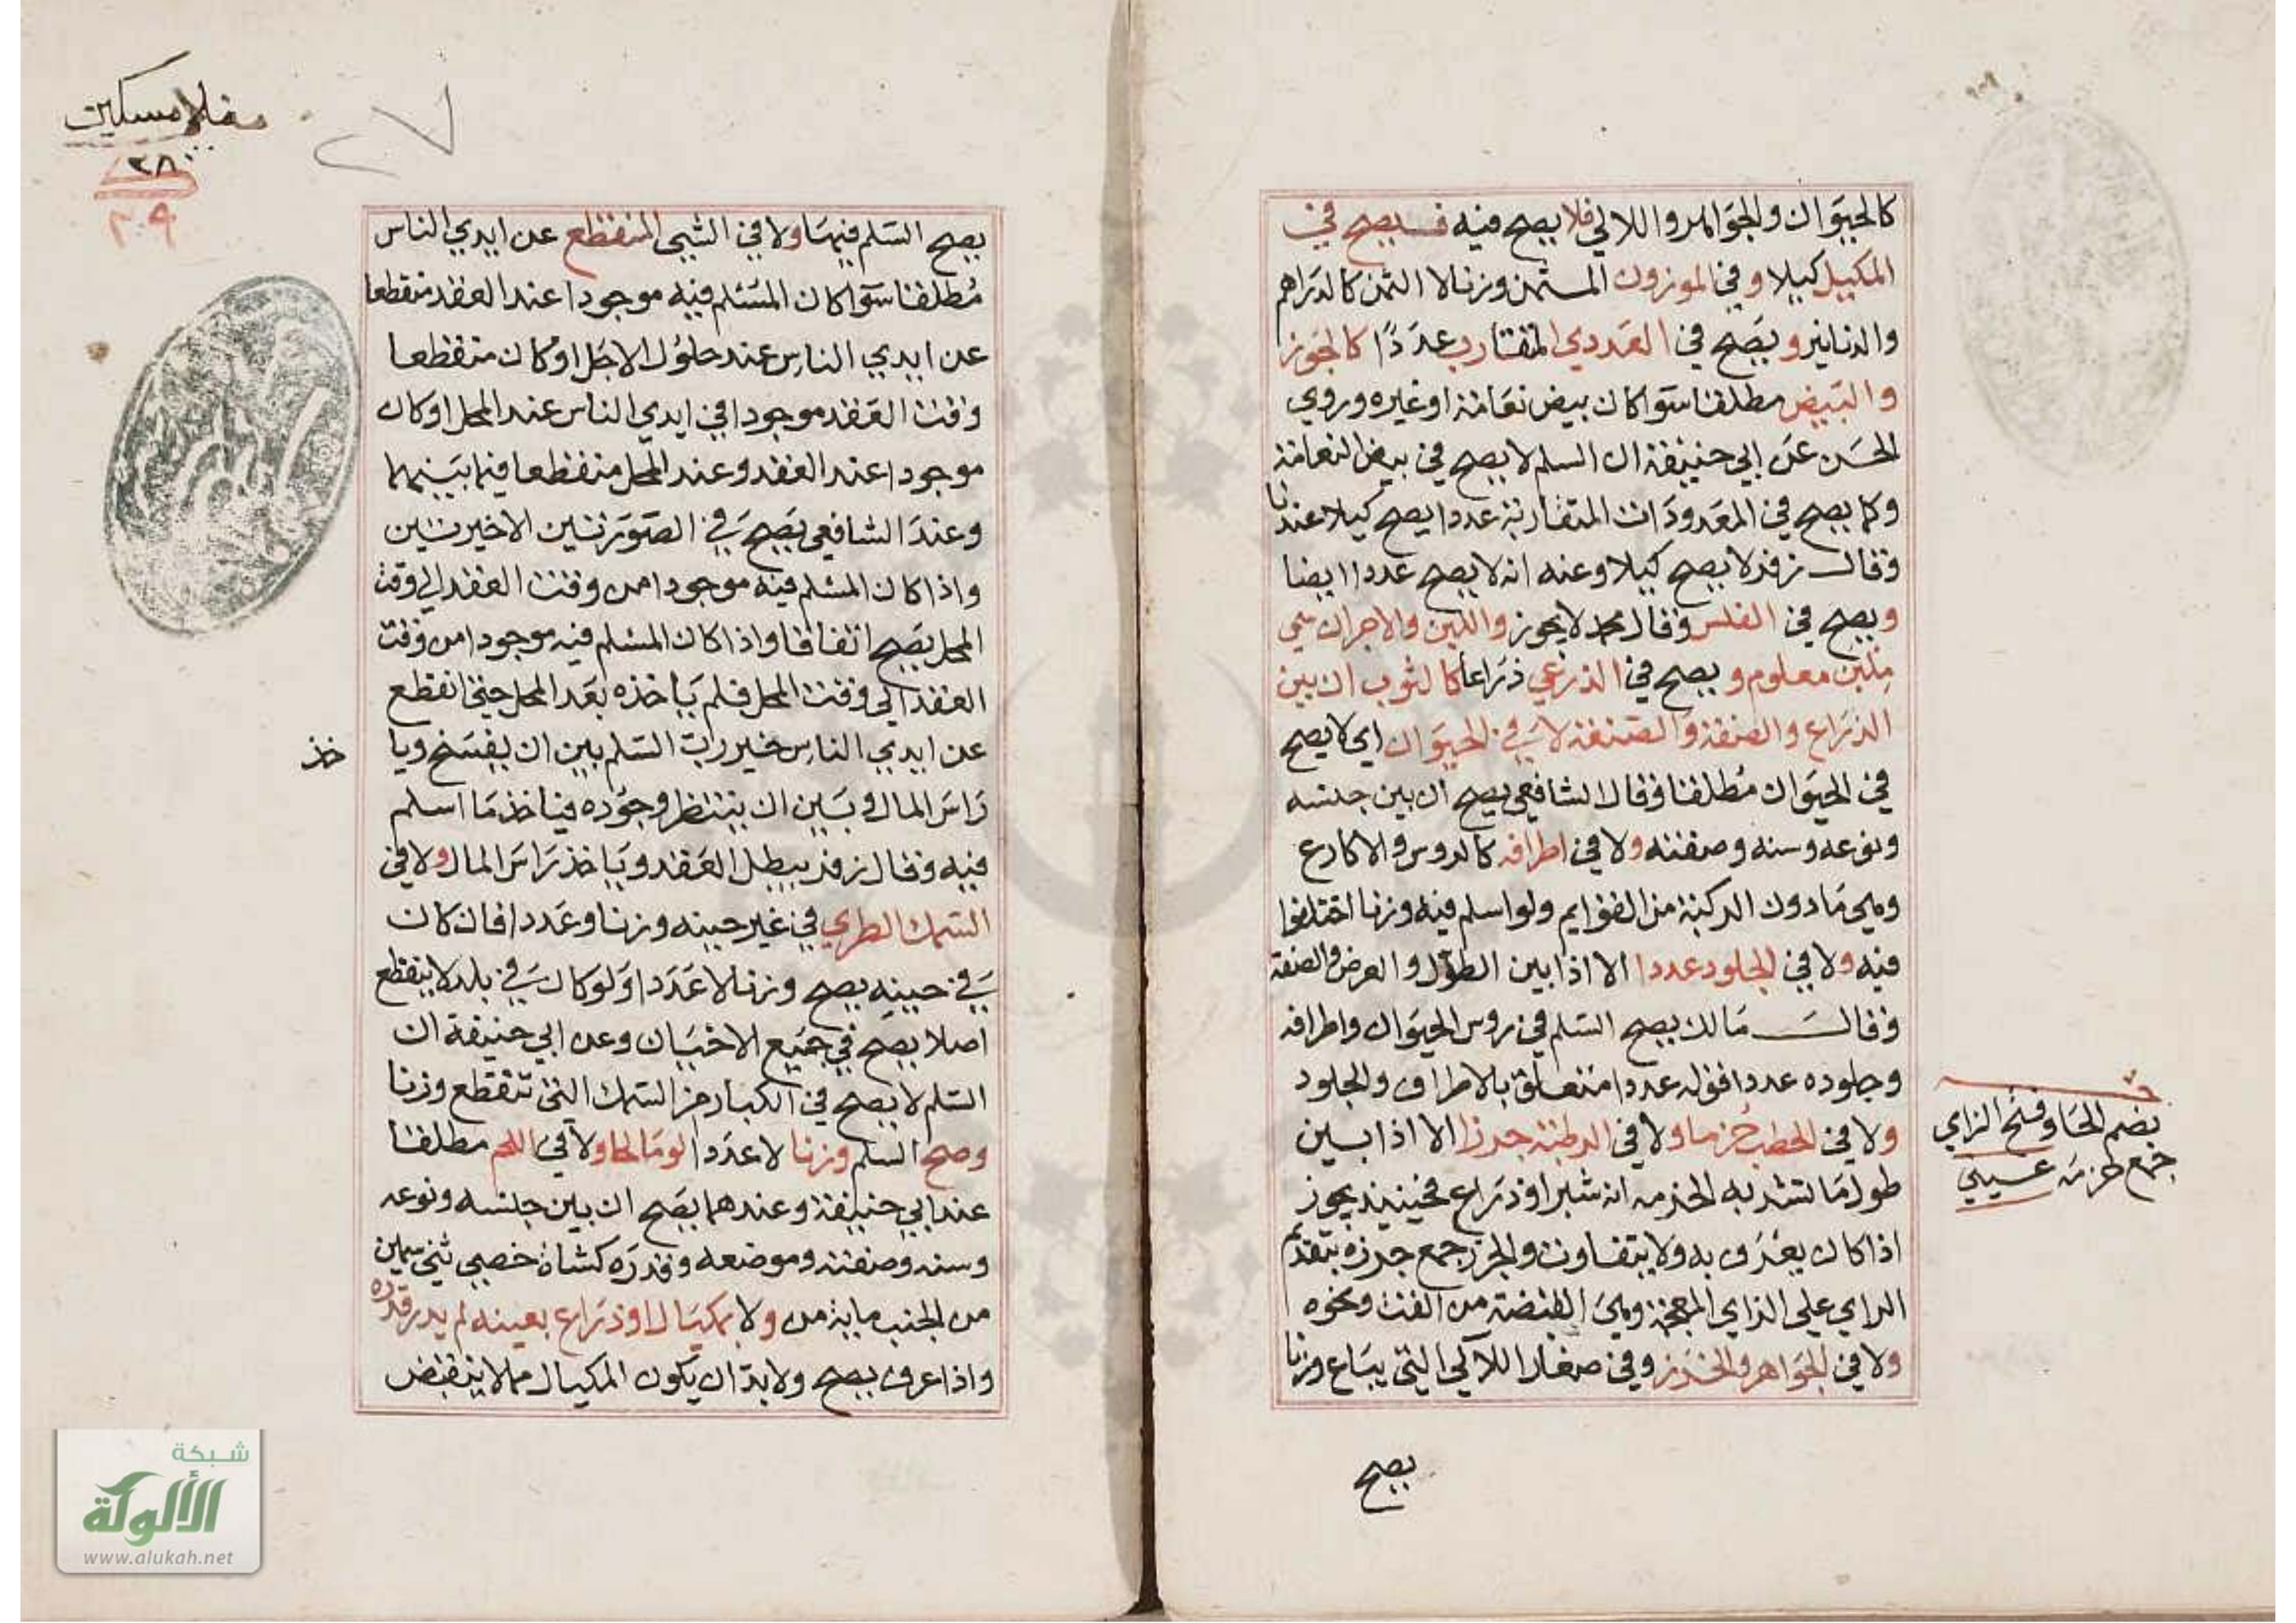 كالحيوان والجواهر واللالي فلا يصح فيه فيصح في
المكيل كيلا وفي الموزون المثمن وزنا لا الثمن كالدراهم
والدنانير ويصح في العددي المتقارب عددًا كالجوز
والبيض مطلقا سوا كان بيض نعامة او غيره وروي
الحسن عن ابي حنيفة ان السلم لا يصح في بيض النعامة
وكما يصح في المعدودات المتقاربة عددا يصح كيلا عندنا
وقال زفر لا يصح كيلا وعنه انه لا يصح عددا ايضا
ويصح في الفلس وقال محمد لا يجوز واللبن والاجر ان سمي
ملبن معلوم و يصح في الذرعي ذراعا كالثوب ان بين
الذراع والصفة والصنعة لا في الحيوان اي لا يصح
في الحيوان مطلقا وقال الشافعي يصح ان بين جنسه
ونوعه وسنه وصفته ولا في اطرافه كالروس والاكارع
وهي ما دون الركبة من القوايم ولو اسلم فيه وزنا اختلفوا
فيه ولا في الجلود عددا الا اذا بين الطول والعرض والصفة
وقال مالك يصح السلم في روس الحيوان واطرافه
وجلوده عددا فقوله عددا متعلق بالاطراف والجلود
ولا في الحطب حُزما ولا في الرطبة جرزا الا اذا بين
طول ما تشد به الحزمه انه شبر او ذراع فحينيذ يجوز
اذا كان يعرف به ولا يتفاوت والجرز جمع جرزه بتقديم
الراي على الزاي المعجمة وهي القبضة من القت ونحوه
ولا في الجواهر والخرز وفي صغار اللالي التي يباع وزنا
يصح
بضم الحا وفتح الزاي
جمع حزمه عيني
منلا مسكين
٢٨
٢٠٩
يصح السلم فيها ولا في الشيي المنقطع عن ايدي الناس
مُطلقا سوا كان المسلم فيه موجودا عند العقد منقطعا
عن ايدي الناس عند حلول الاجل او كان منقطعا
وقت العقد موجودا في ايدي الناس عند المحل او كان
موجودا عند العقد وعند المحل منقطعا فيما بينهما
وعند الشافعي يصح في الصورتين الاخيرتين
واذا كان المسلم فيه موجودا من وقت العقد الى وقت
المحل يصح اتفاقا واذا كان المسلم فيه موجودا من وقت
العقد الي وقت المحل فلم ياخذه بعد المحل حتى انقطع
عن ايدي الناس خير رب السلم بين ان يفسخ ويا
خذ
راس المال وبين ان ينتظر وجوده فياخذ ما اسلم
فيه وقال زفر يبطل العقد وياخذ راس المال ولا في
السمك الطري في غير حينه وزنا وعددا فان كان
في حينه يصح وزنا لا عددا ولو كان في بلد لا ينقطع
اصلا يصح في جميع الاحيان وعن ابي حنيفة ان
السلم لا يصح في الكبار من السمك التي تنقطع وزنا
وصح السلم وزنا لا عددا لو مالحا ولا في اللحم مطلقا
عند ابي حنيفة وعندهما يصح ان بين جنسه ونوعه
وسنه وصفته وموضعه وقدره كشاة خصي ثني سمين
من الجنب ماية من ولا بمكيال او ذراع بعينه لم يدر قدره
واذا عرف يصح ولا بد ان يكون المكيال مما لا ينقبض
شبكة
الألوكة
www.alukah.net